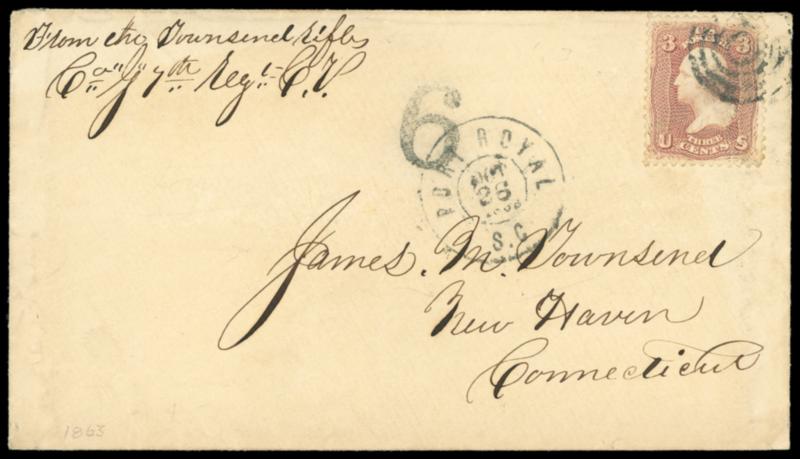 From the Townsend Rifles
Co "J" 7th Regt C.V.
3 3
U S
THREE
CENTS
6
PORT ROYAL
OCT
26
1863
S.C.
James. M. Townsend
New Haven
Connecticut
1863